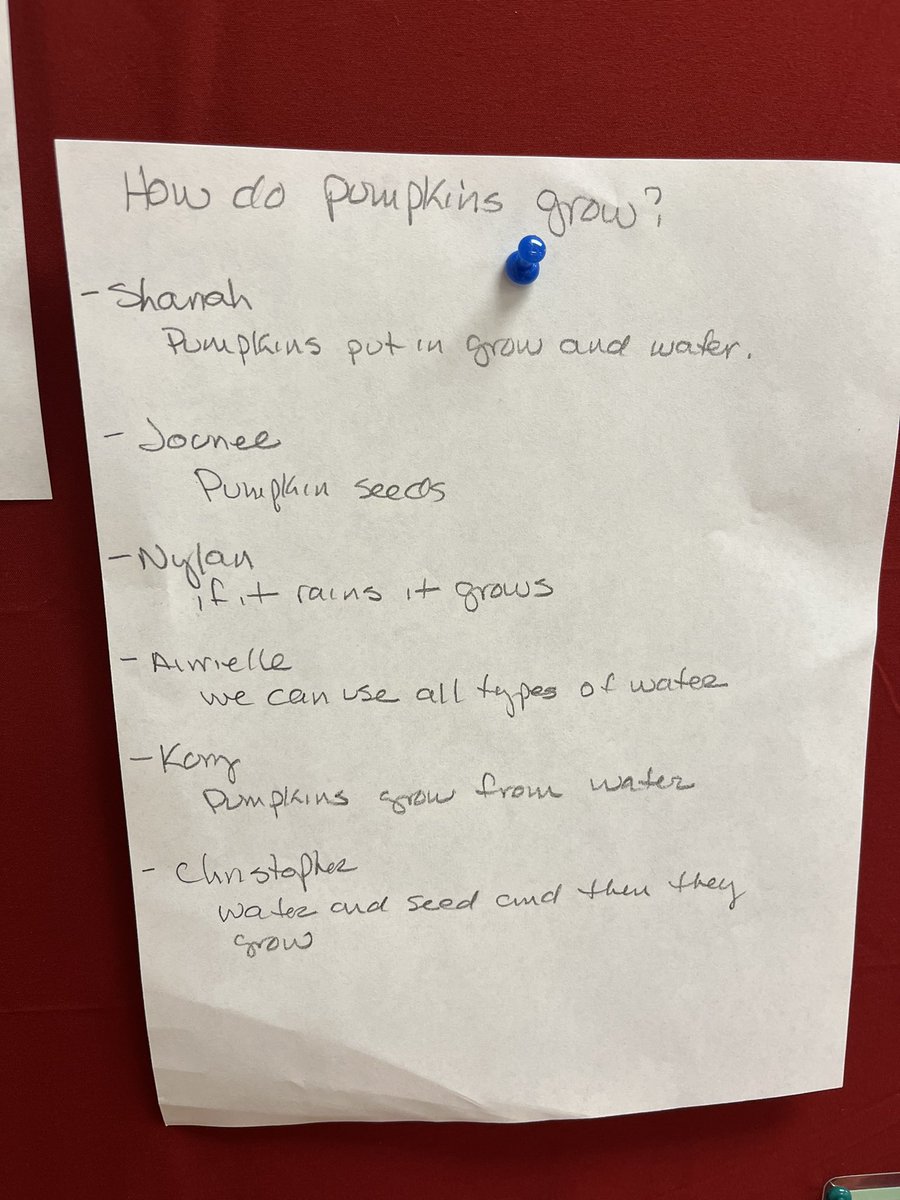 How do pumpkins grow?
- Shanah
Pumpkins put in grow and water.
- Journee
Pumpkin seeds
- Nylan
if it rains it grows
- Aurielle
we can use all types of water
- Kory
Pumpkins grow from water
- Christopher
water and seed and then they
grow